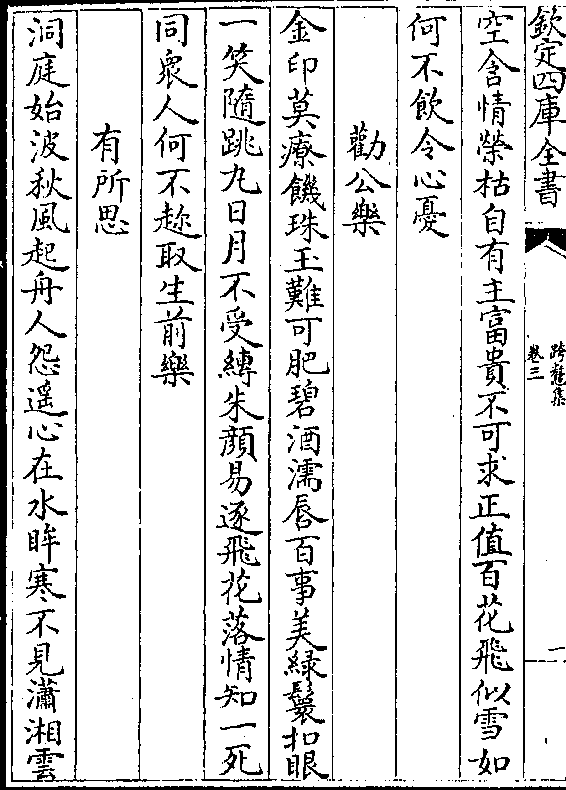 欽定四庫全書
跨鼇集
卷三
一
空含情榮枯自有主富貴不可求正值百花飛似雪如
何不飲令心憂
勸公樂
金印莫療饑珠玉難可肥碧酒濡唇百事美緑鬟扣眼
一笑隨跳九日月不受縳朱顔易逐飛花落情知一死
同衆人何不趂取生前樂
有所思
洞庭始波秋風起舟人怨遥心在水眸寒不見瀟湘雲